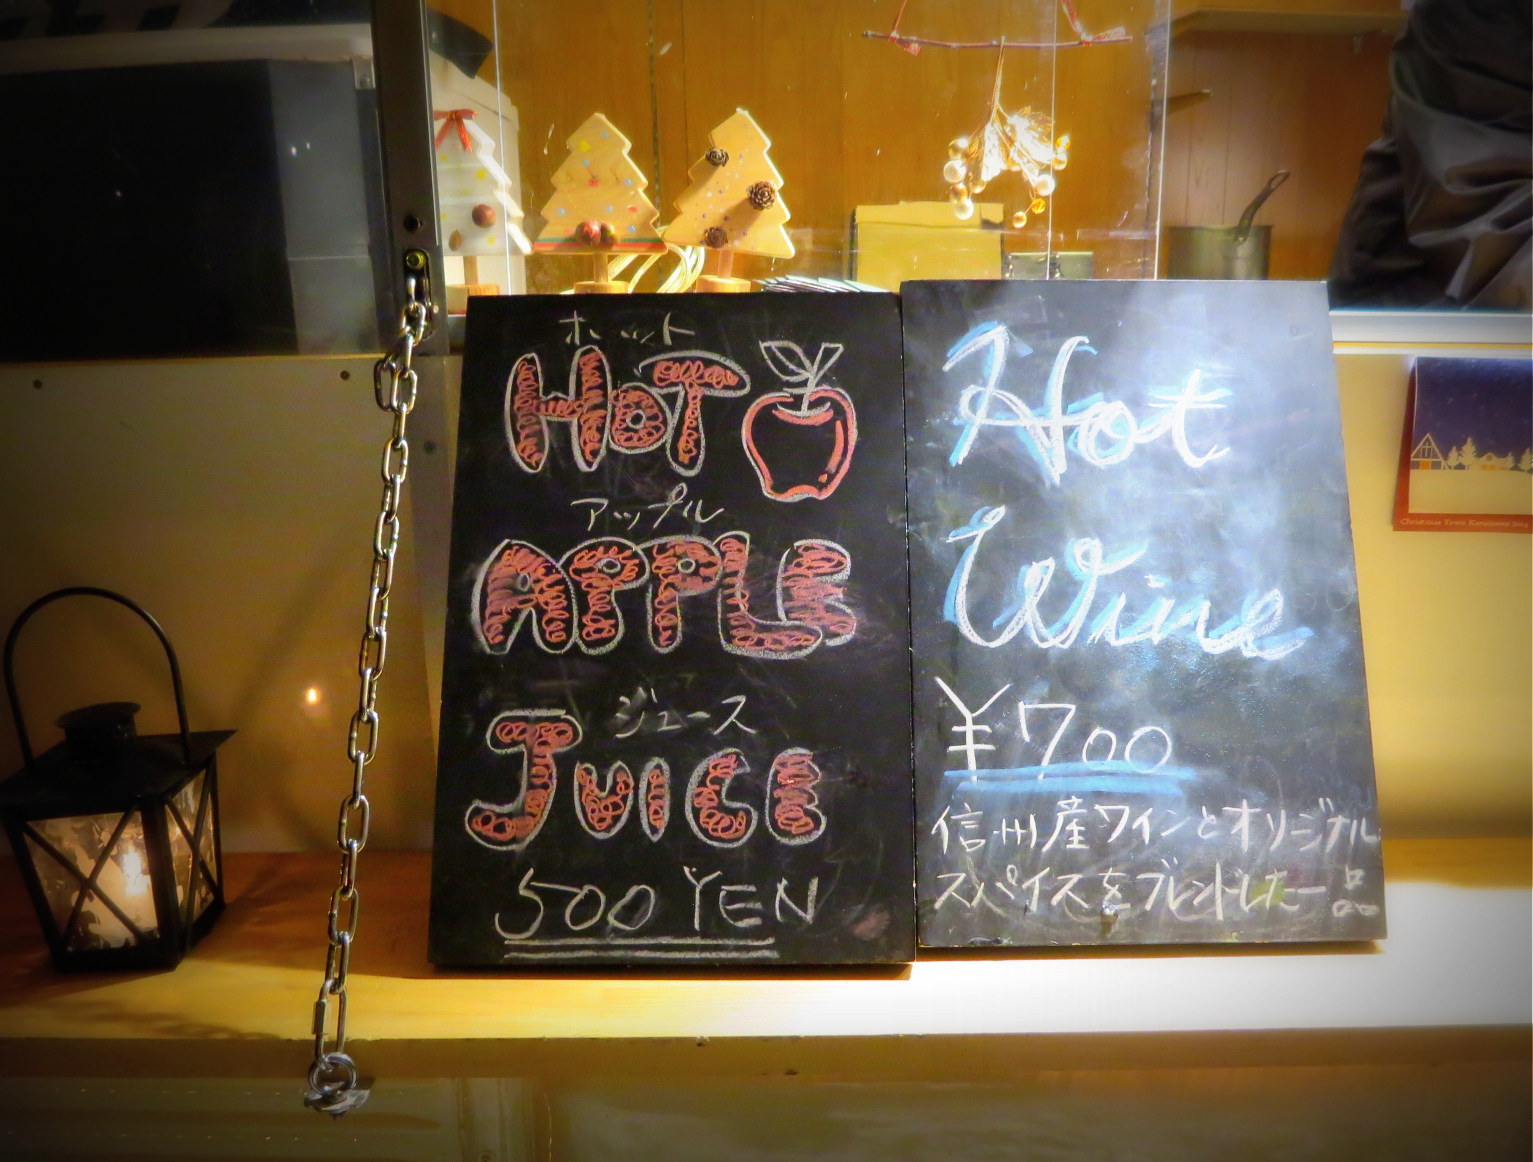 ホット
HOT
アップル
APPLE
ジュース
JUICE
500 YEN
Hot
Wine
¥700
信州産ワインとオリジナル
スパイスをブレンドした一品